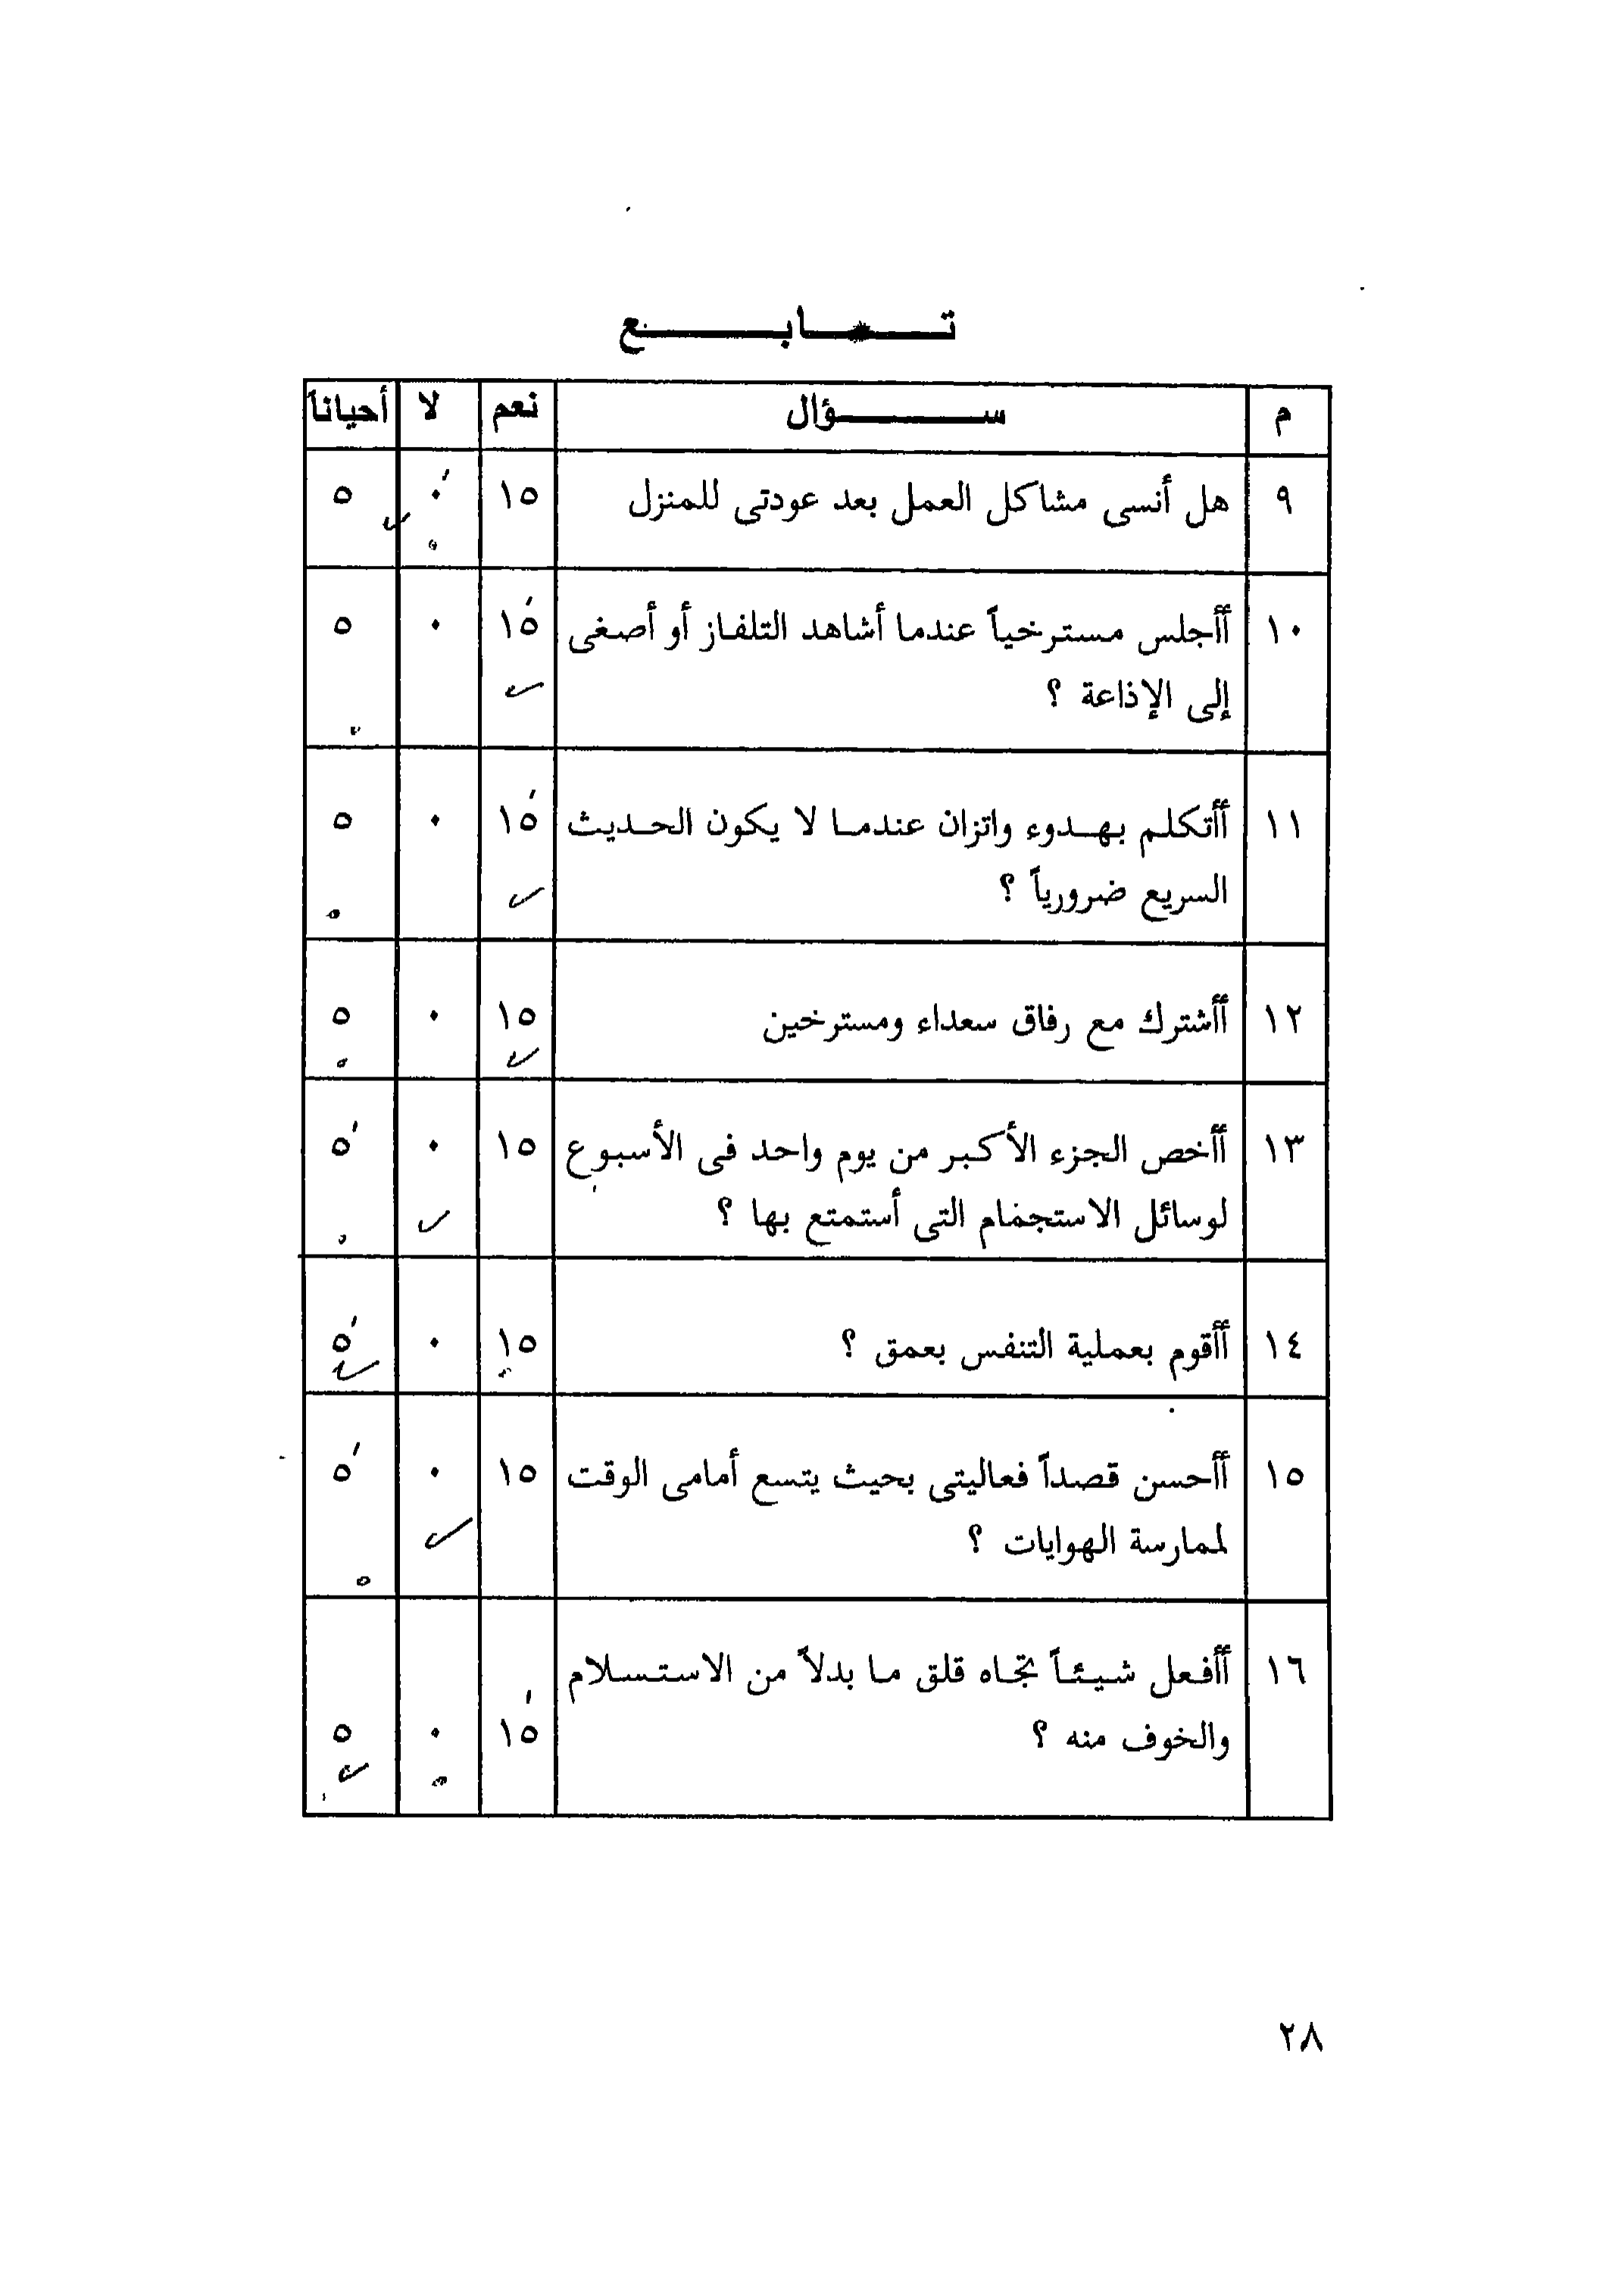 تابع
م سؤال نعم لا أحياناً
٩ هل أنسى مشاكل العمل بعد عودتى للمنزل ١٥ ٠ ٥
١٠ أأجلس مسترخياً عندما أشاهد التلفاز أو أصغى ١٥ ٠ ٥
إلى الإذاعة ؟
١١ أأتكلم بهدوء واتزان عندما لا يكون الحديث ١٥ ٠ ٥
السريع ضرورياً ؟
١٢ أأشترك مع رفاق سعداء ومسترخين ١٥ ٠ ٥
١٣ أأخص الجزء الأكبر من يوم واحد فى الأسبوع ١٥ ٠ ٥
لوسائل الاستجمام التى أستمتع بها ؟
١٤ أأقوم بعملية التنفس بعمق ؟ ١٥ ٠ ٥
١٥ أأحسن قصداً فعاليتى بحيث يتسع أمامى الوقت ١٥ ٠ ٥
لممارسة الهوايات ؟
١٦ أأفعل شيئاً تجاه قلق ما بدلاً من الاستسلام
والخوف منه ؟ ١٥ ٠ ٥
٢٨